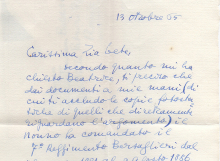 13 Ottobre 55
Carissima Zia Bebe,
secondo quanto mi ha
chiesto Beatrice, ti preciso che
dai documenti a mie mani (di
cui ti accludo le copie fotosta
tiche di quelli che direttamente
riguardano l'argomento) il
Nonno ha comandato il
7° Reggimento Bersaglieri dal
al agosto 1886